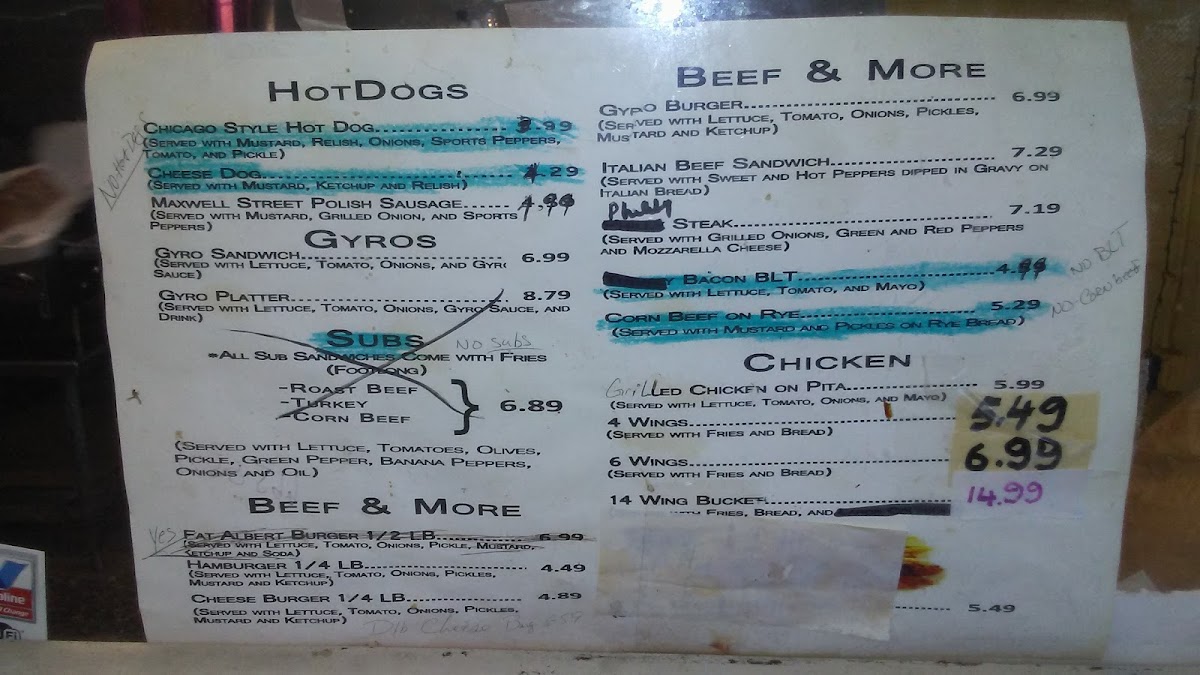 HotDogs
No Hot Dogs
Chicago Style Hot Dog .99
(Served with Mustard, Relish, Onions, Sports Peppers,
Tomato, and Pickle)
Cheese Dog 4.29
(Served with Mustard, Ketchup and Relish)
Maxwell Street Polish Sausage 4.99
(Served with Mustard, Grilled Onion, and Sports
Peppers)
Gyros
Gyro Sandwich 6.99
(Served with Lettuce, Tomato, Onions, and Gyro
Sauce)
Gyro Platter 8.79
(Served with Lettuce, Tomato, Onions, Gyro Sauce, and
Drink)
Subs No Subs
*All Sub Sandwiches Come with Fries
(Footlong)
-Roast Beef
-Turkey
-Corn Beef
} 6.89
(Served with Lettuce, Tomatoes, Olives,
Pickle, Green Pepper, Banana Peppers,
Onions and Oil)
Beef & More
yes Fat Albert Burger 1/2 LB 6.99
(Served with Lettuce, Tomato, Onions, Pickle, Mustard,
Ketchup and Soda)
Hamburger 1/4 LB 4.49
(Served with Lettuce, Tomato, Onions, Pickles,
Mustard and Ketchup)
Cheese Burger 1/4 LB 4.89
(Served with Lettuce, Tomato, Onions, Pickles,
Mustard and Ketchup)
Cheese
Beef & More
Gyro Burger 6.99
(Served with Lettuce, Tomato, Onions, Pickles,
Mustard and Ketchup)
Italian Beef Sandwich 7.29
(Served with Sweet and Hot Peppers dipped in Gravy on
Italian Bread)
Philly
Steak 7.19
(Served with Grilled Onions, Green and Red Peppers
and Mozzarella Cheese)
Bacon BLT 4.99 No BLT
(Served with Lettuce, Tomato, and Mayo)
Corn Beef on Rye 5.29 No Corn beef
(Served with Mustard and Pickles on Rye Bread)
Chicken
Grilled Chicken on Pita 5.99
(Served with Lettuce, Tomato, Onions, and Mayo)
4 Wings 5.49
(Served with Fries and Bread)
6 Wings 6.99
(Served with Fries and Bread)
14 Wing Bucket 14.99
with Fries, Bread, and
5.49